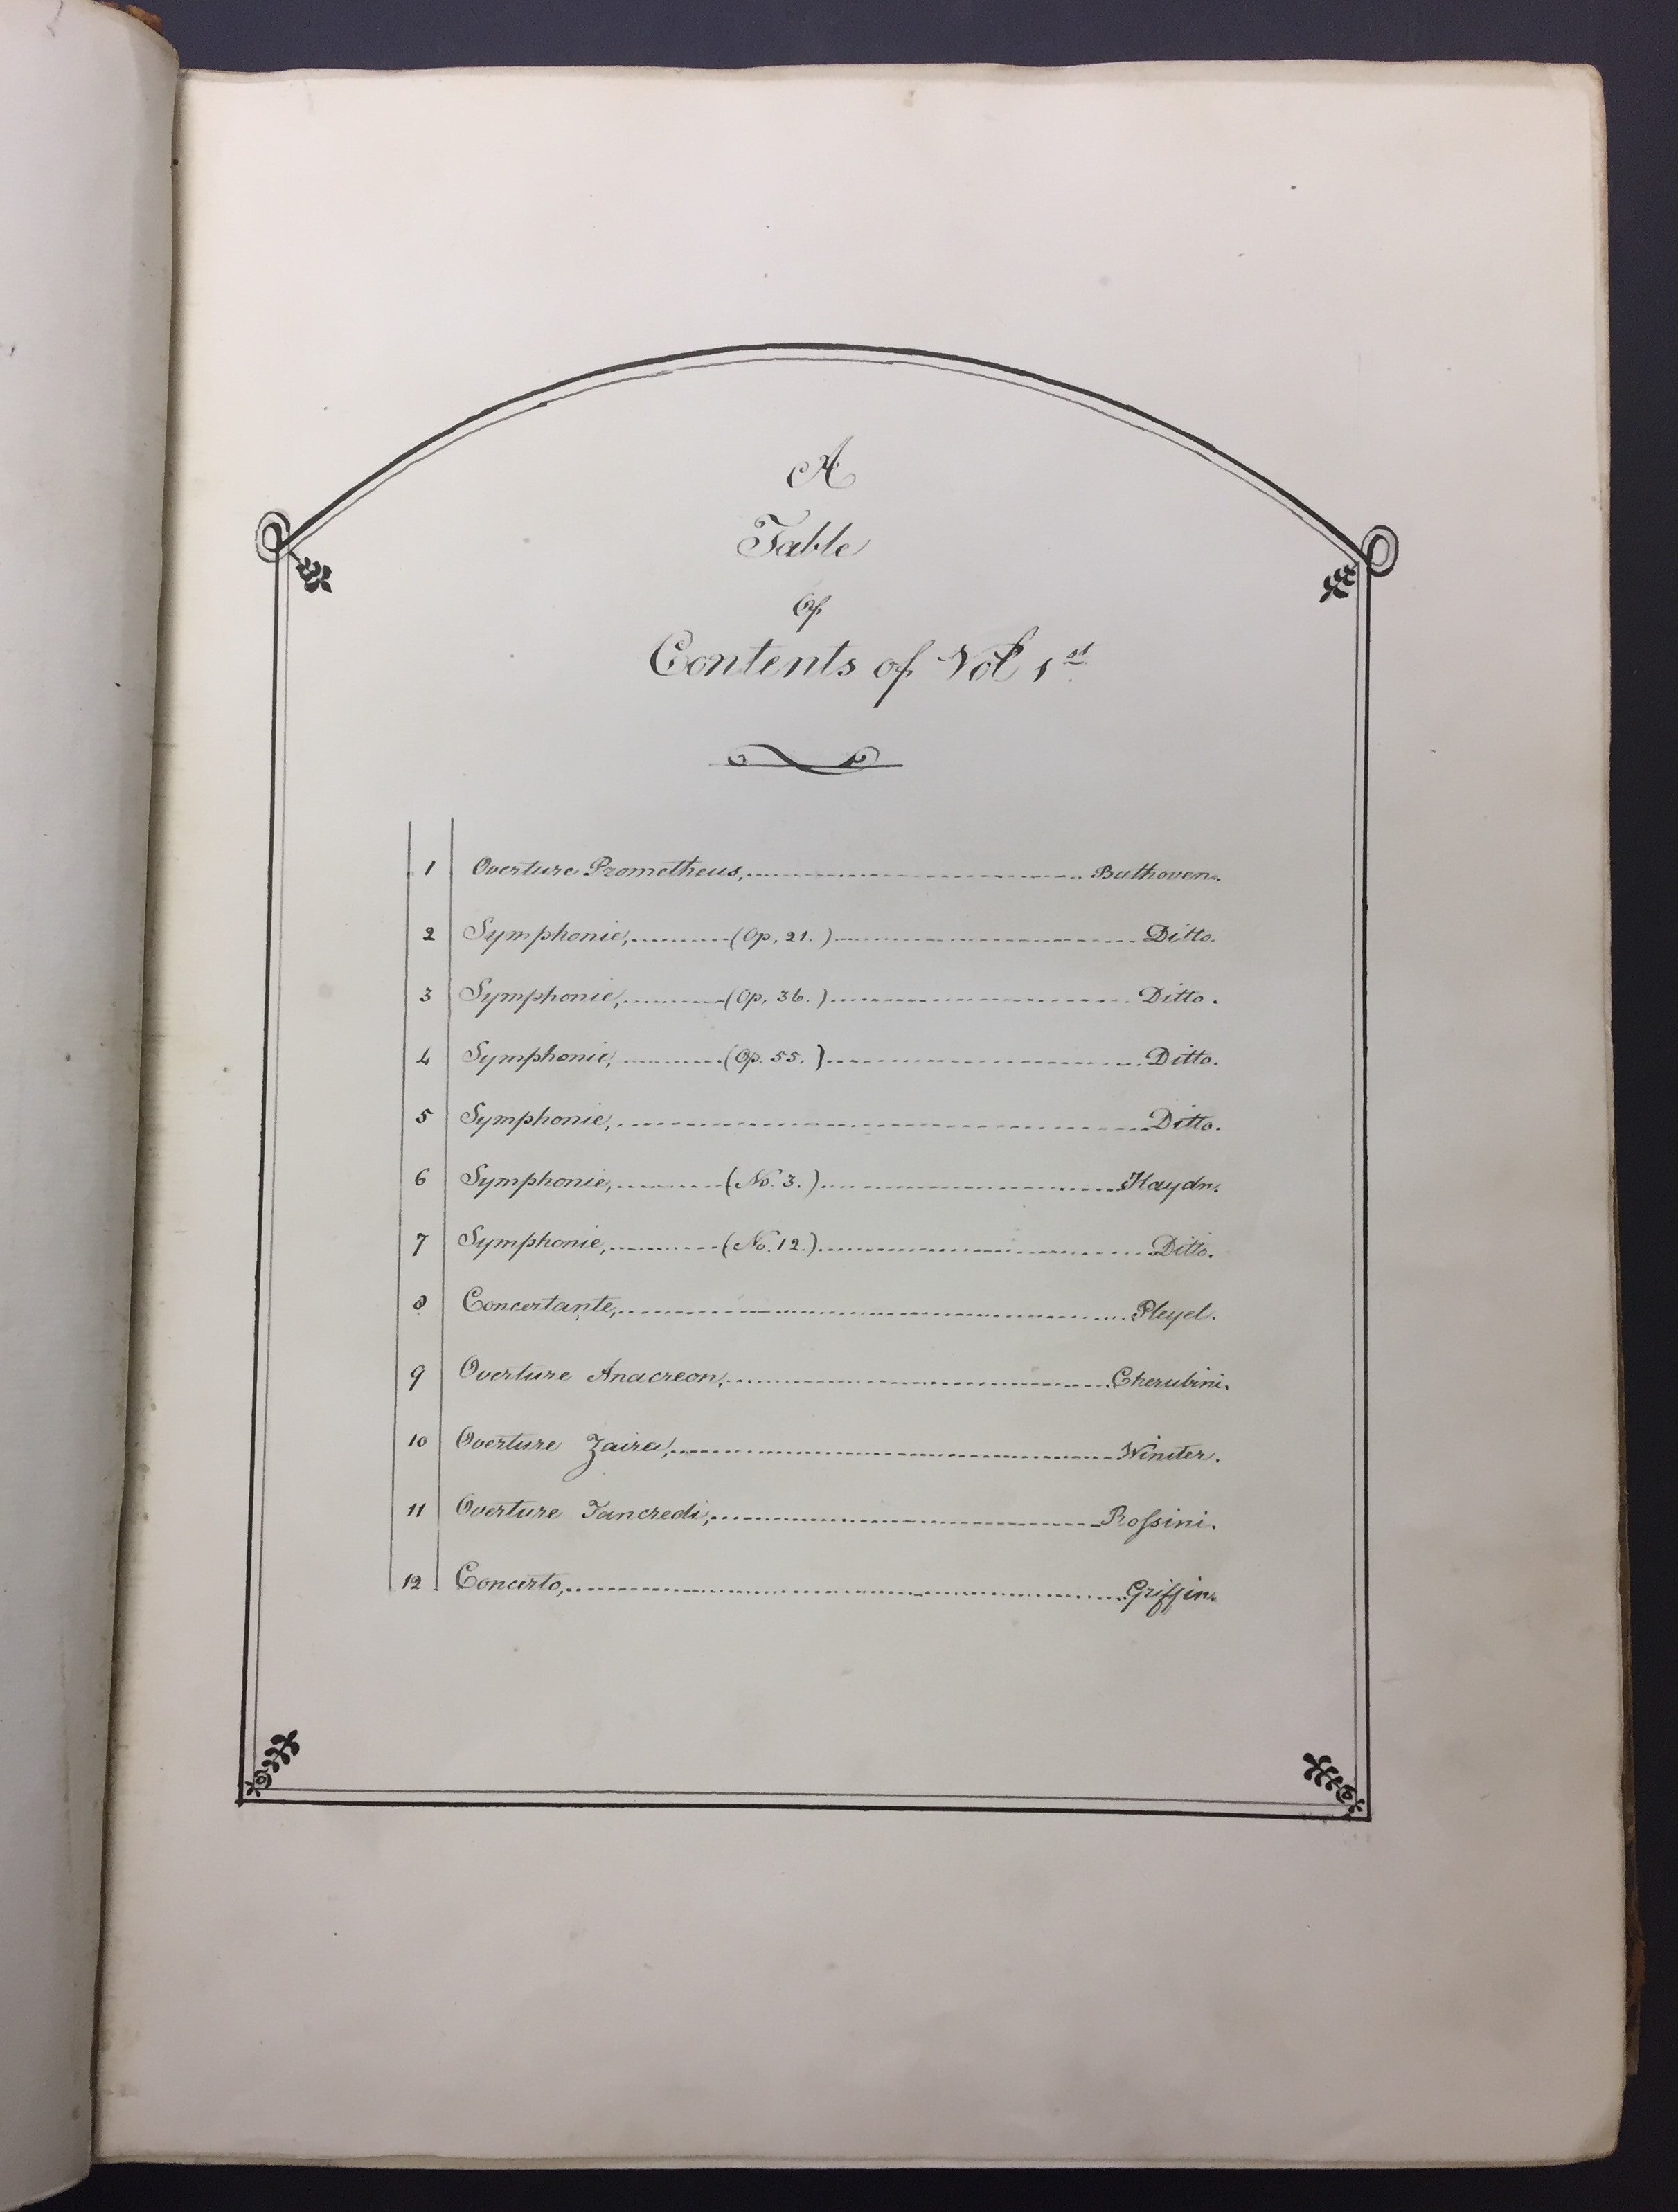 A
Table
Of
Contents of Vol 1st
1 Overture Prometheus, Beethoven.
2 Symphonie, (Op. 21.) Ditto.
3 Symphonie, (Op. 36.) Ditto.
4 Symphonie, (Op. 55.) Ditto.
5 Symphonie, Ditto.
6 Symphonie, (No. 3.) Haydn.
7 Symphonie, (No. 12.) Ditto.
8 Concertante, Pleyel.
9 Overture Anacreon, Cherubini.
10 Overture Zaira, Winter.
11 Overture Tancredi, Roſsini.
12 Concerto, Griffin.